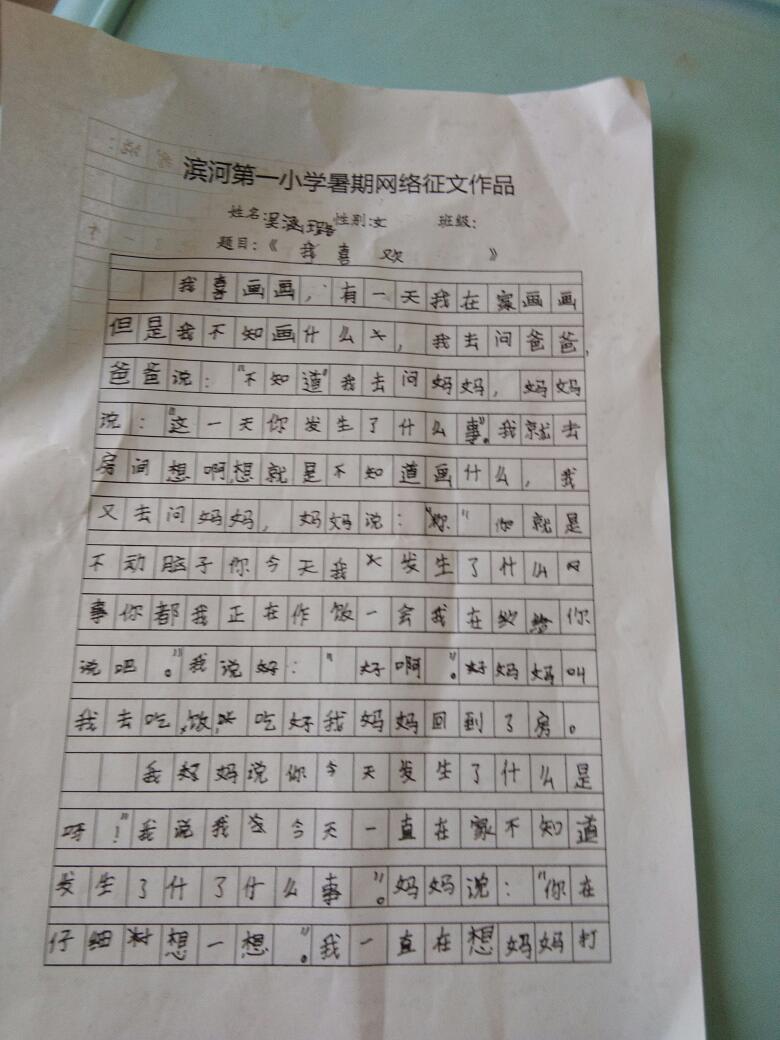 滨河第一小学暑期网络征文作品
姓名吴涵璐 性别:女 班级:
题目:《 我喜欢 》
我喜画画，有一天我在家画画
但是我不知画什么，我去问爸爸，
爸爸说：“不知道”我去问妈妈，妈妈
说：“这一天你发生了什么事”。我就去
房间想啊,想就是不知道画什么，我
又去问妈妈，妈妈说：“你”你就是
不动脑子你今天我发生了什么
事你都我正在作饭一会我在给你
说吧。”我说好：“好啊”。好妈妈叫
我去吃饭,吃好我妈妈回到了房。
我妈妈说你今天发生了什么是
呀！”我说我今天一直在家不知道
发生了什了什么事”。妈妈说：“你在
仔细想一想”。我一直在想妈妈打